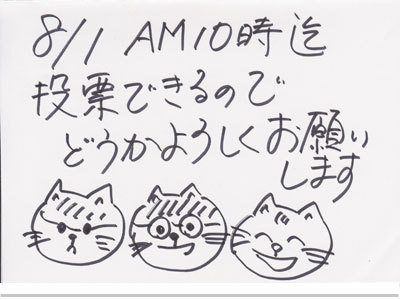 8/1 AM10時迄
投票できるので
どうかよろしくお願い
します